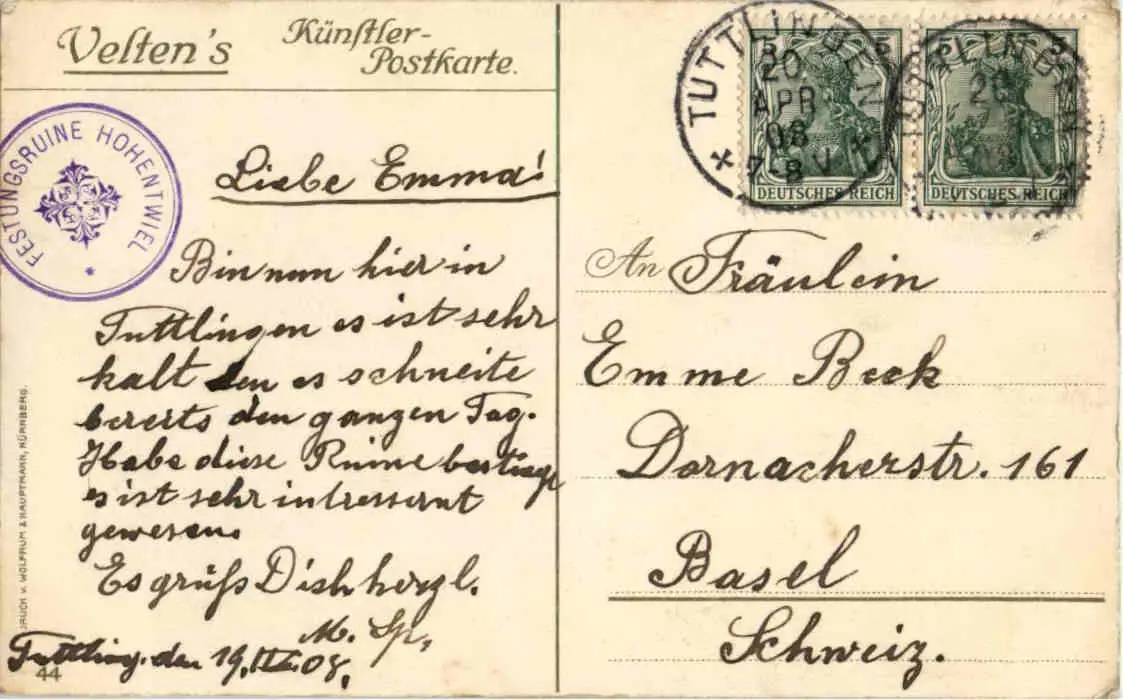 Velten's Künstler-
Postkarte.
FESTUNGSRUINE HOHENTWIEL
Liebe Emma!
Bin nun hier in
Tuttlingen es ist sehr
kalt den es schneite
bereits den ganzen Tag.
Habe diese Ruine bestiegen
es ist sehr intressant
gewesen.
Es grüßt Dich herzl.
M. Sp.
Tuttling. den 19. IV. 08.
44
DRUCK v. WOLFRUM & HAUPTMANN, NÜRNBERG.
TUTTLINGEN
20
APR
08
7-8 V
5 5
DEUTSCHES REICH
TUTTLINGEN
20
5
DEUTSCHES REICH
An Fräulein
Emme Beck
Dornacherstr. 161
Basel
Schweiz.